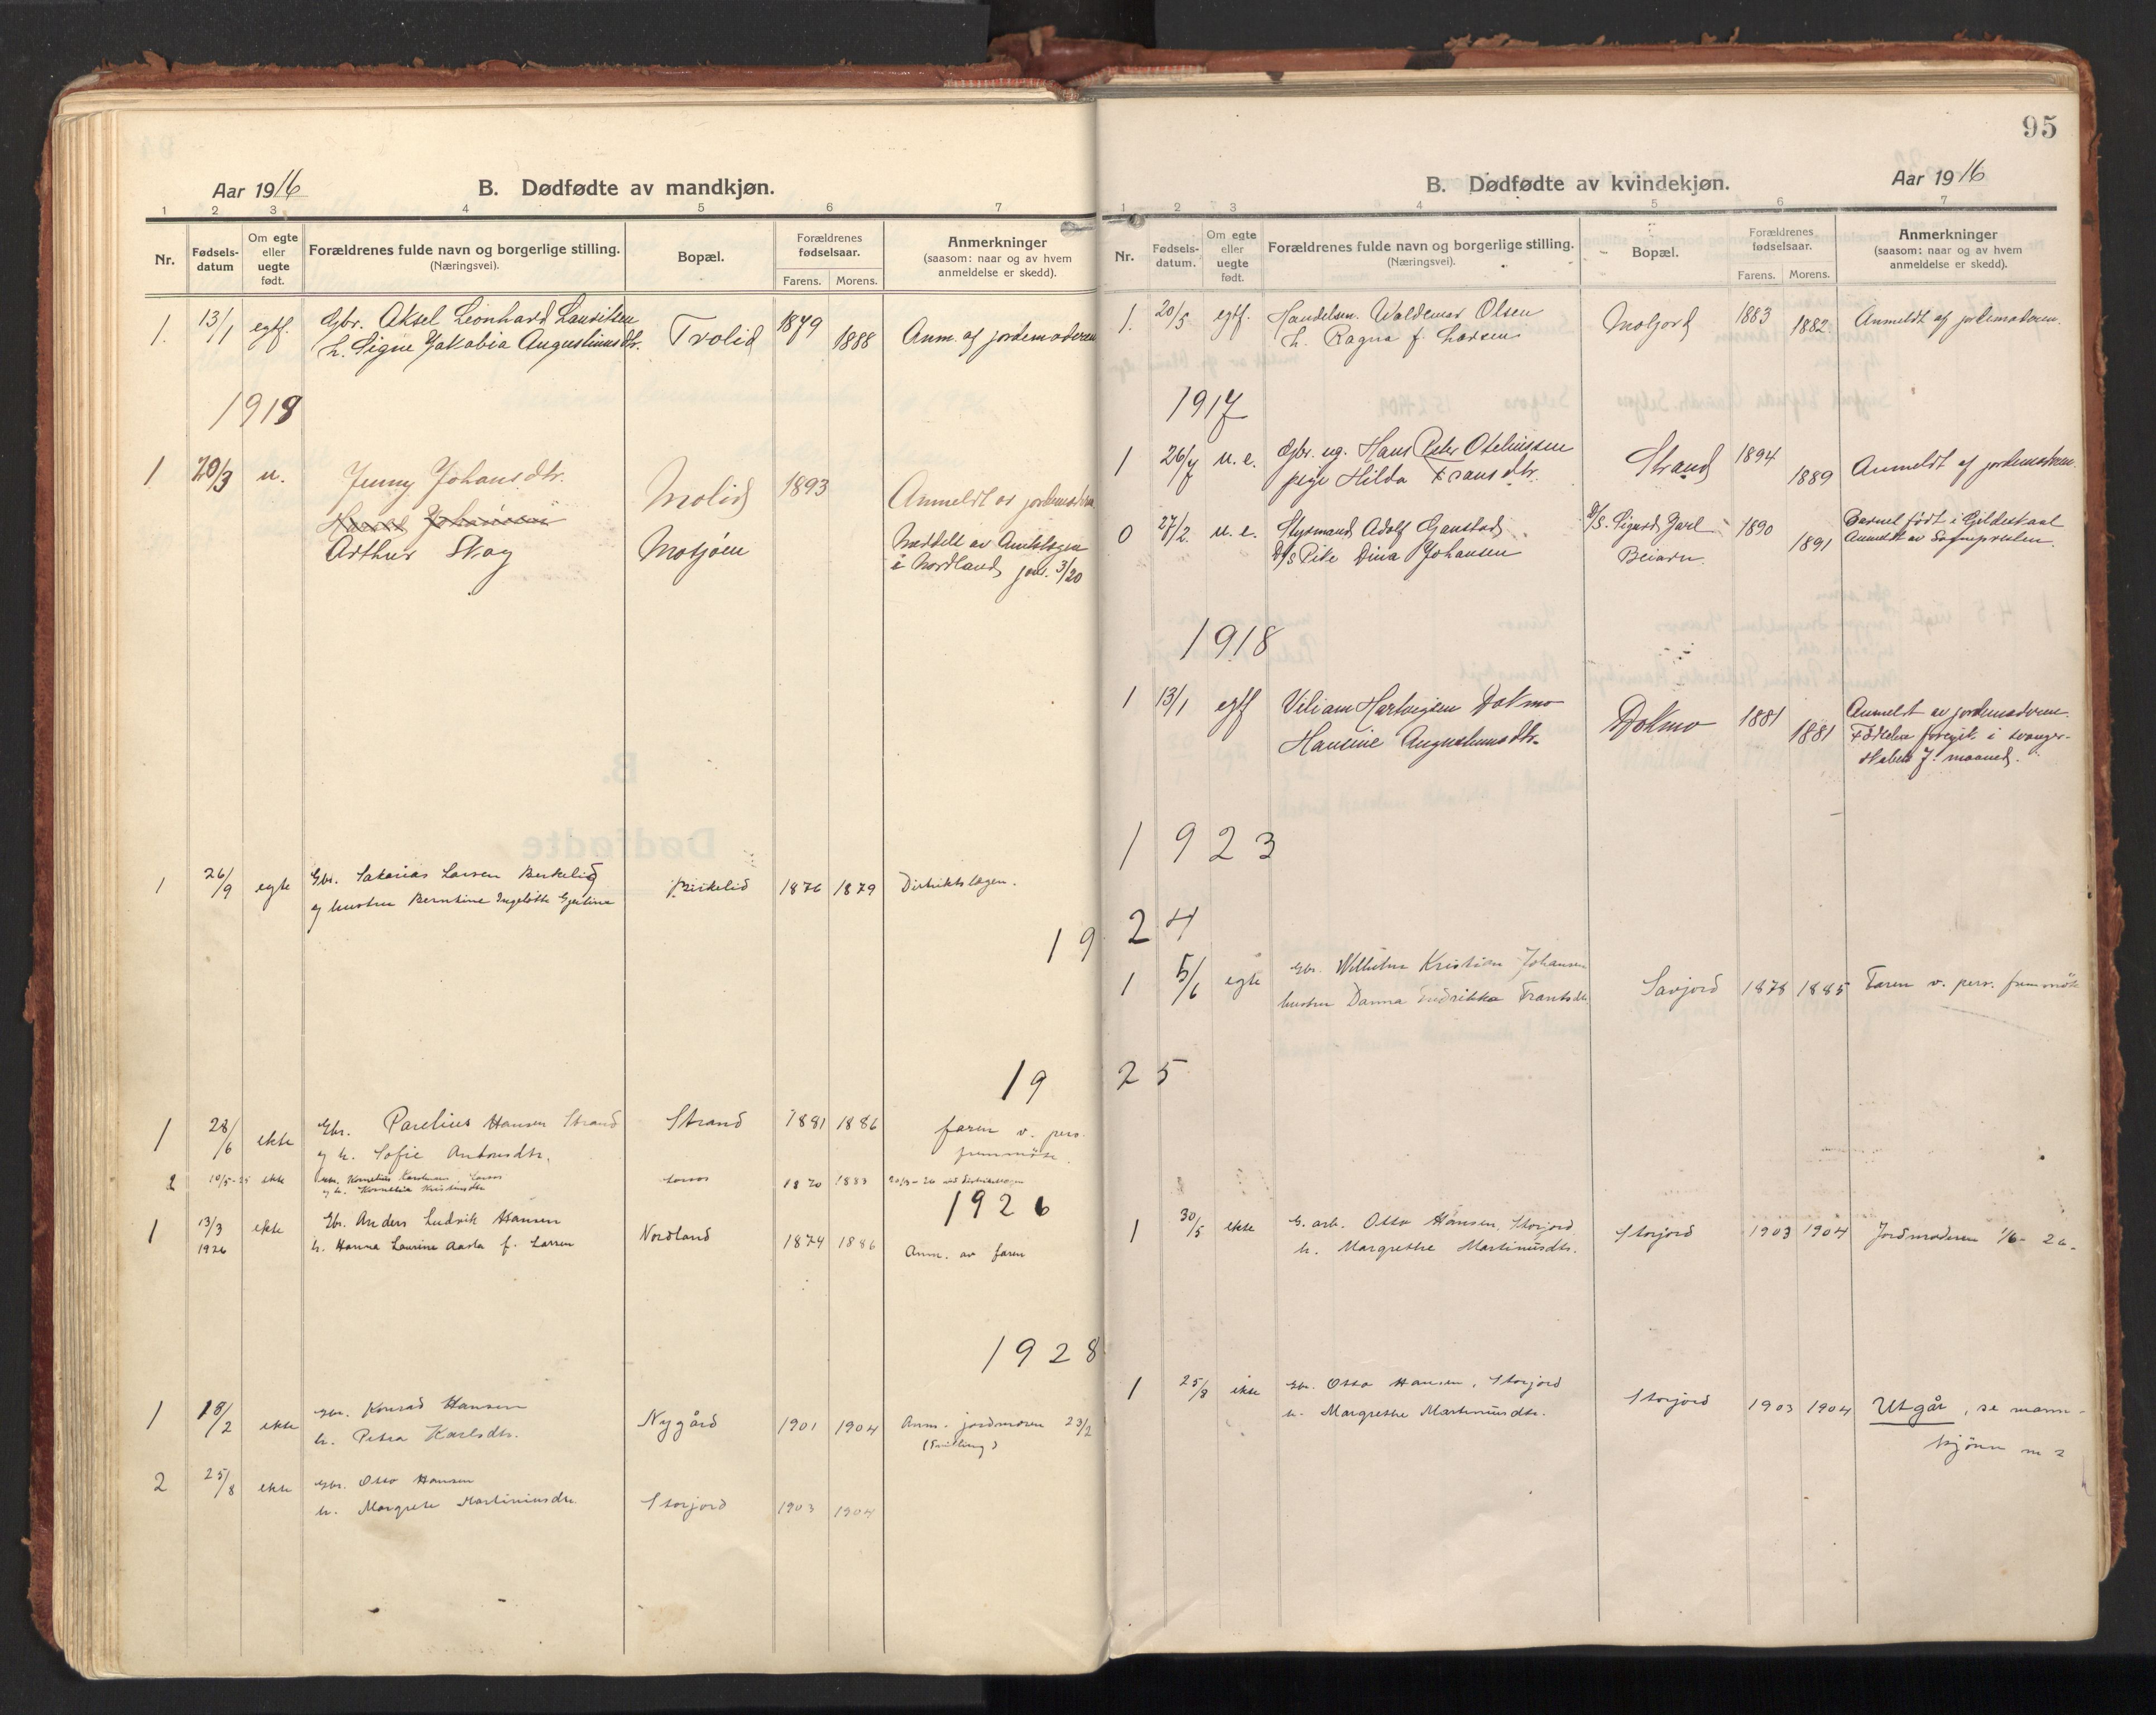 Aar 1916
B. Dødfødte av mandkjøn.
1 2 3 4 5 6 7
Nr.
Fødsels-
datum
Om egte
eller
uegte
født.
Forældrenes fulde navn og borgerlige stilling.
(Næringsvei).
Bopæl.
Forældrenes
fødselsaar.
Farens. Morens.
Anmerkninger
(saasom: naar og av hvem
anmeldelse er skedd).
1. 13/1 egtf. Gbr. Aksel Leonhard Lauritsen Trolid 1879 1888 Anm. af jordemoderen
h. Signe Jakobia Augustinusdtr.
1918
1 20/3 u. Jenny Johansdtr. Molid 1893 Anmeldt av jordemoderen
Johansen
Arthur Skog Mosjøen Meddelt av Amtslægen
i Nordland jour. 3/20
1 26/9 egte Gbr. Sakarias Larsen Birkelid Birkelid 1876 1879 Distriktslægen.
og hustru Berntine Ingelotte Gjertine
19
19
1 28/6 ekte Gbr. Parelius Hansen Strand Strand 1881 1886 faren v. pers.
og h. Sofie Antonsdtr. fremmöte.
2 10/5-25 ekte 1870 1883
og h. Kornelia Kristiansdtr
1926
1 13/3 ekte Gbr. Anders Ludvik Hansen Nordland 1874 1886 Anm. av faren
1926 h. Hanna Laurine Aasta f. Larsen
1928
1 18/2 ekte Gbr. Konrad Hansen Nygård 1901 1904 Anm. jordmoren 23/2
h. Petra Karlsdtr. (Tvilling)
2 25/8 ekte Gbr. Otto Hansen Storjord 1903 1904
h. Margrete Martiniusdtr.
95
B. Dødfødte av kvindekjøn.
Aar 1916
1 2 3 4 5 6 7
Nr.
Fødsels-
datum.
Om egte
eller
uegte
født.
Forældrenes fulde navn og borgerlige stilling.
(Næringsvei).
Bopæl.
Forældrenes
fødselsaar.
Farens. Morens.
Anmerkninger
(saasom: naar og av hvem
anmeldelse er skedd).
1. 20/5 egtf. Handelsm. Waldemar Olsen Moljord 1883 1882 Anmeldt af jordemoderen.
h. Ragna f. Larsen
1917
1 26/7 u. e. Gbr. ug. Hans Peter Otelinssen Strand 1894 1889 Anmeldt af jordemoderen.
pige Hilda Fransdtr.
0 27/2. u. e. Styrmand Adolf Gaustad D/S. Sigurd Jarl 1890 1891 Barnet født i Gildeskaal
D/S Pike Dina Johansen Beiarn. Anmeldt av Sognepresten.
1918
1 13/1 egtf Viliam Hartvigsen Dokmo Dokmo 1881 1881 Anmeldt av jordemoderen.
Hansine Augustinusdtr. Födselen foregik i svanger-
skabets 7. maaned.
1923
24
1 5/6 egte Gbr. Wilhelm Kristian Johansen Savjord 1878 1885 Faren v. pers. fremmöte
hustru Danna Fredrikka Frantsdtr
25
1 30/5 ekte G. arb. Otto Hansen, Storjord Storjord 1903 1904 Jordmoderen 1/6-26.
h. Margrethe Martinusdtr.
1 25/8 ekte Gbr. Otto Hansen, Storjord Storjord 1903 1904 Utgår, se mann-
h. Margrethe Martinusdtr. kjönn nr 2